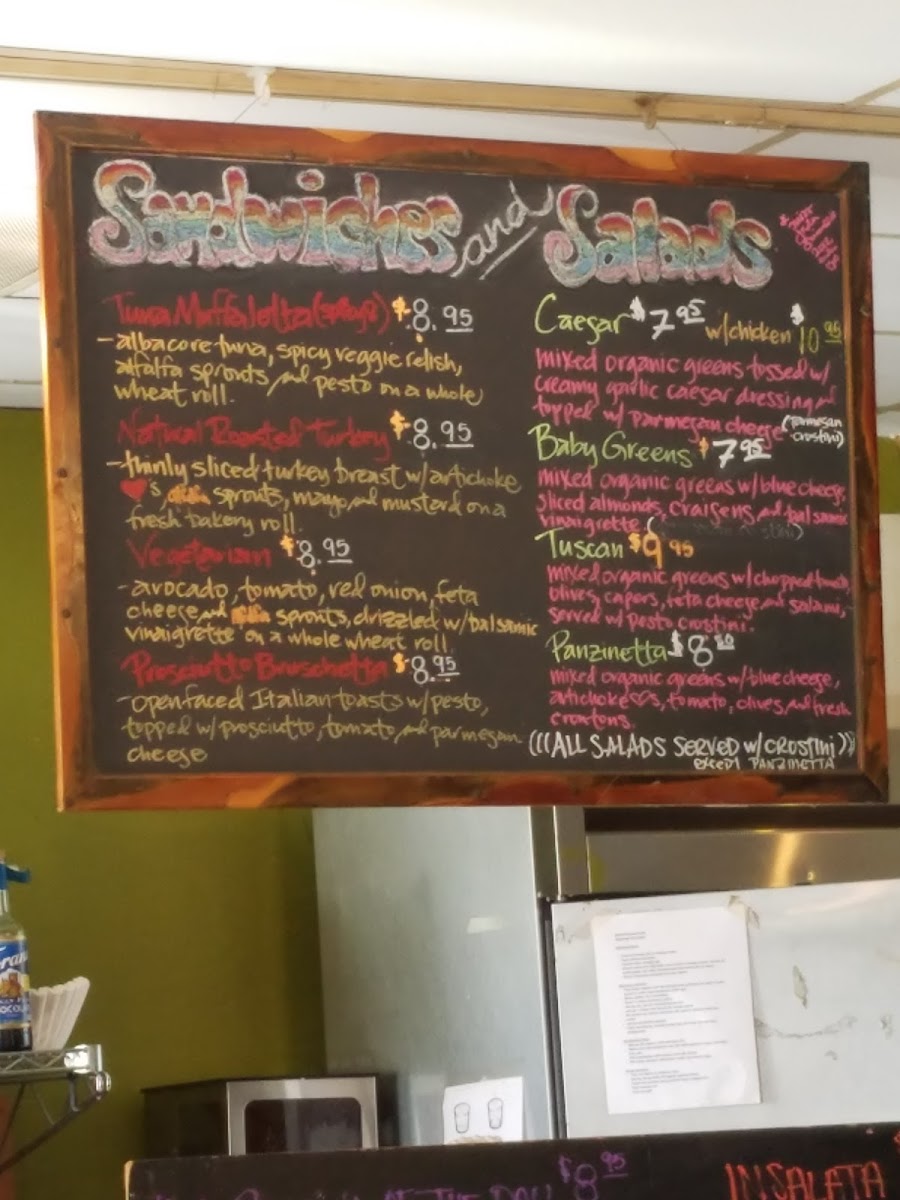 Sandwiches and Salads
Tuna Muffaletta (spicy!) $8.95
-albacore tuna, spicy veggie relish,
alfalfa sprouts and pesto on a whole
wheat roll.
Natural Roasted Turkey $8.95
-thinly sliced turkey breast w/artichoke
♥'s, sprouts, mayo and mustard on a
fresh bakery roll.
Vegetarian $8.95
-avocado, tomato, red onion, feta
cheese and sprouts, drizzled w/balsamic
vinaigrette on a whole wheat roll
Prosciutto Bruschetta $8.95
-openfaced Italian toasts w/pesto,
topped w/prosciutto, tomato, and parmesan
cheese
Caesar $7.95 w/chicken $10.95
mixed organic greens tossed w/
creamy garlic caesar dressing and
topped w/ parmesan cheese (parmesan
crostini)
Baby Greens $7.95
mixed organic greens w/blue cheese,
sliced almonds, craisens and balsamic
vinaigrette.
Tuscan $9.95
mixed organic greens w/chopped tomato,
olives, capers, feta cheese and salami,
served w/ pesto crostini.
Panzinetta $8.50
mixed organic greens w/blue cheese,
artichoke ♡s, tomato, olives, and fresh
croutons.
(((ALL SALADS SERVED w/CROSTINI)))
EXCEPT PANZINETTA
OF THE DAY $8.95
INSALATA